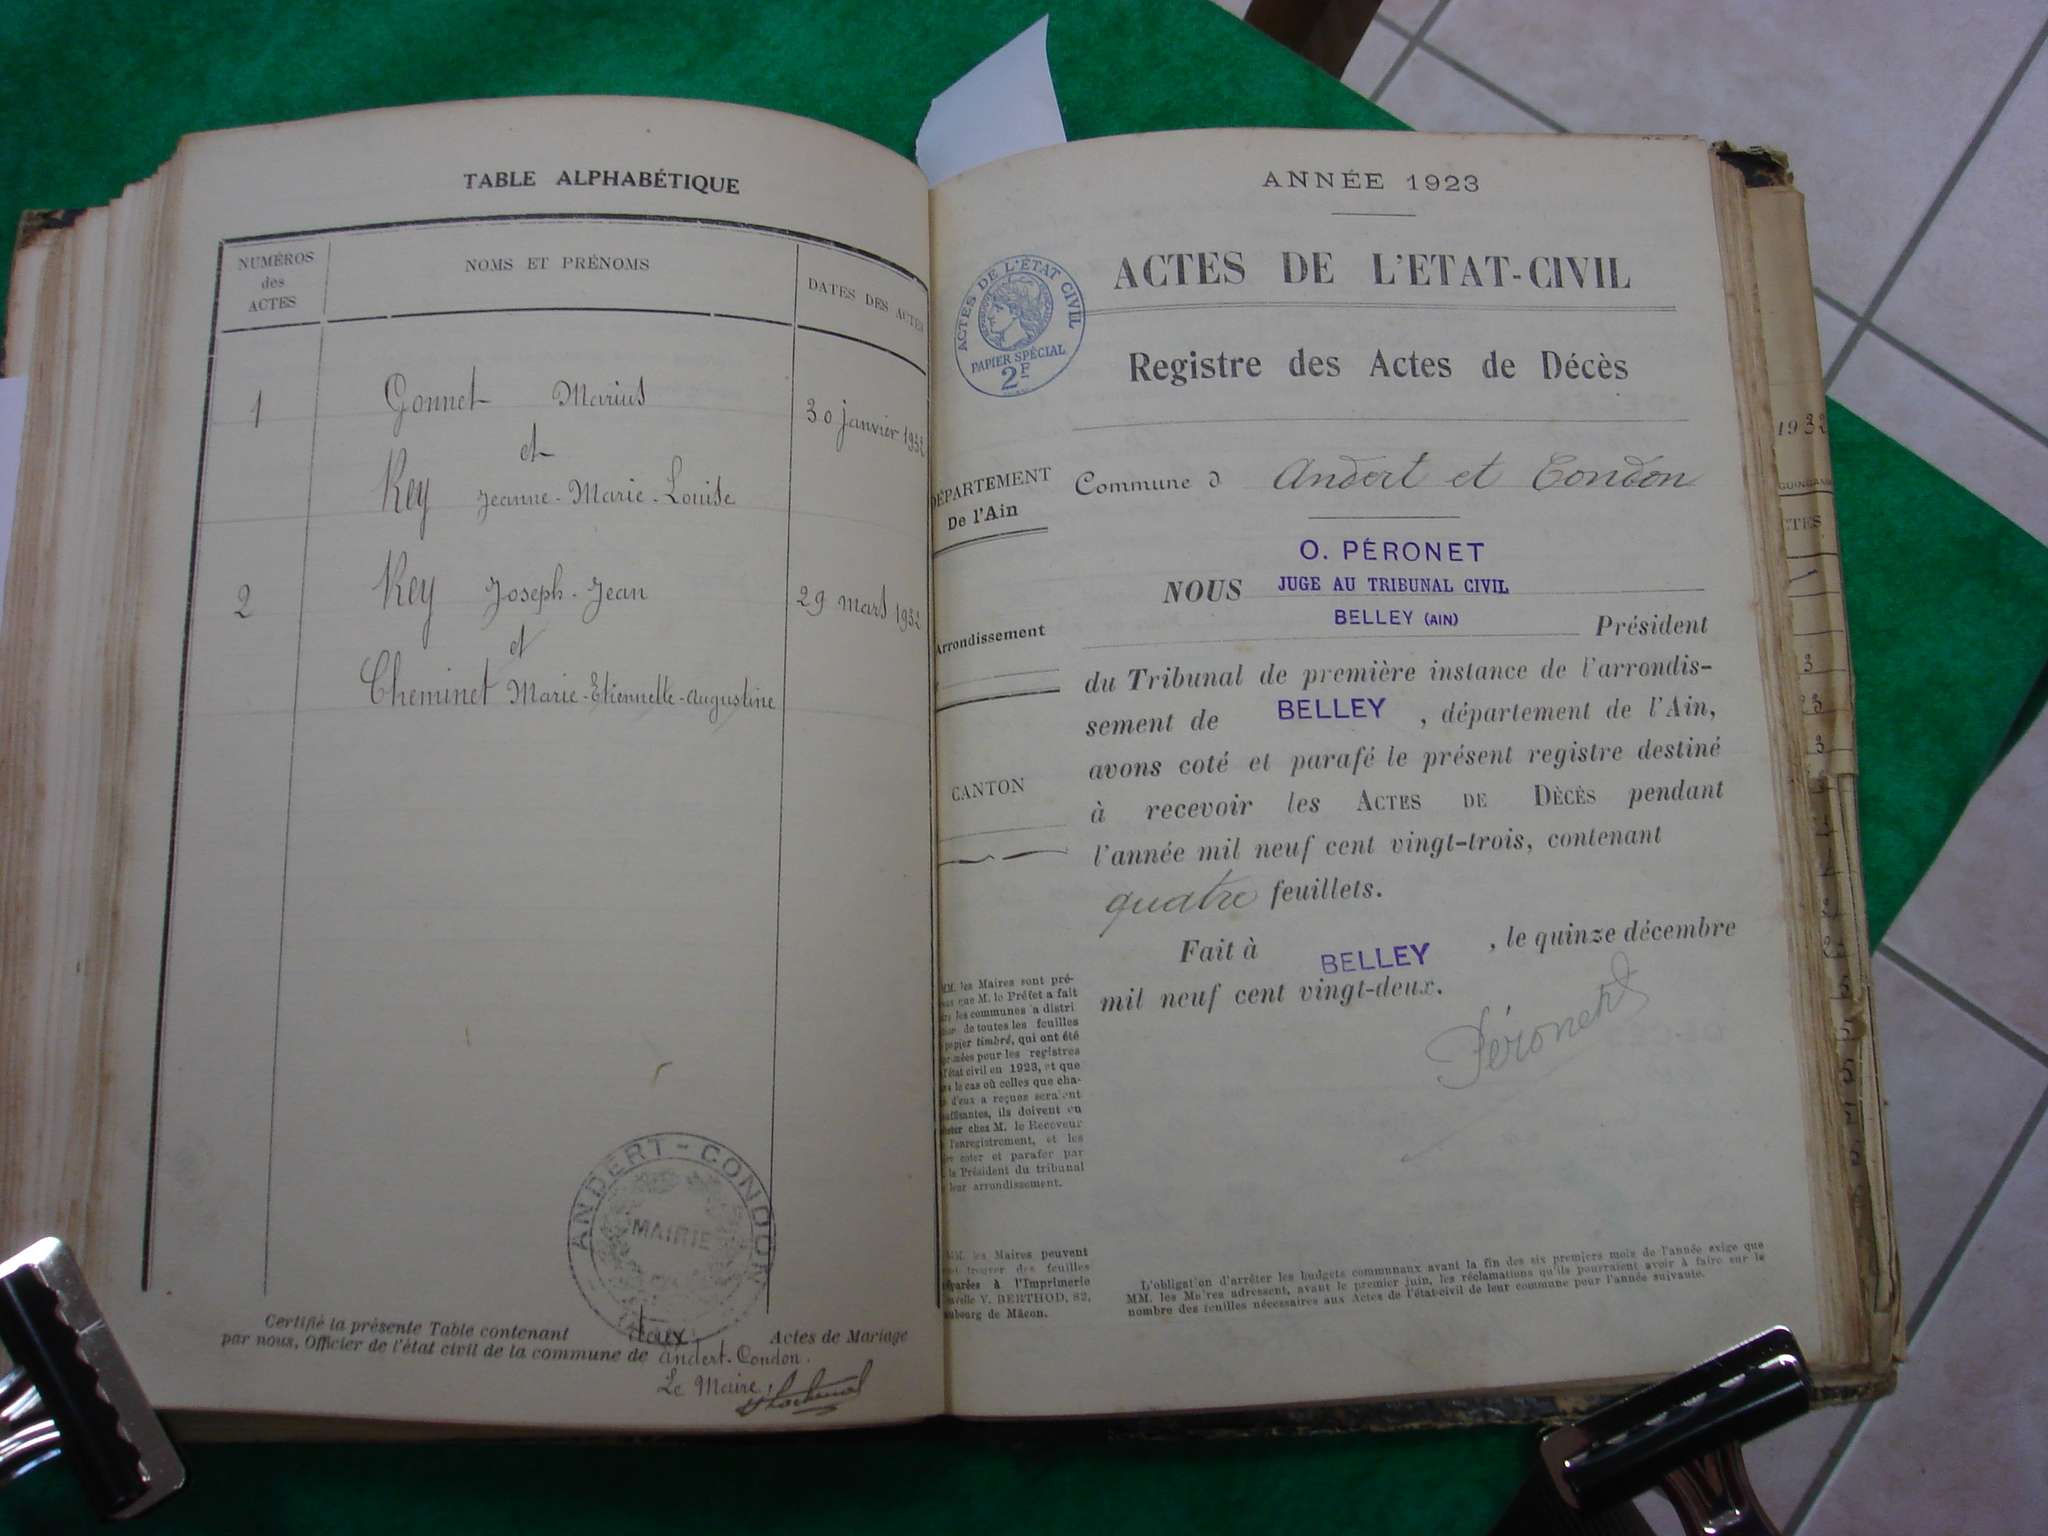 TABLE ALPHABÉTIQUE
NUMÉROS
des
ACTES
NOMS ET PRÉNOMS
DATES DES ACTES
1
Gonnet Marius
30 janvier 1932
et
Rey Jeanne-Marie-Louise
2
Rey Joseph-Jean
29 mars 1932
et
Cheminet Marie-Etiennette-Augustine
ANDERT-CONDON
MAIRIE
Certifié la présente Table contenant deux Actes de Mariage
par nous, Officier de l'état civil de la commune de Andert-Condon.
Le Maire,
ANNÉE 1923
ACTES DE L'ÉTAT CIVIL
PAPIER SPÉCIAL
2F
ACTES DE L'ETAT-CIVIL
Registre des Actes de Décès
DÉPARTEMENT
De l'Ain
Arrondissement
CANTON
Commune d Andert et Condon
O. PÉRONET
NOUS JUGE AU TRIBUNAL CIVIL
BELLEY (AIN)
Président
du Tribunal de première instance de l'arrondis-
sement de BELLEY, département de l'Ain,
avons coté et parafé le présent registre destiné
à recevoir les ACTES DE DÉCÈS pendant
l'année mil neuf cent vingt-trois, contenant
quatre feuillets.
Fait à BELLEY, le quinze décembre
mil neuf cent vingt-deux.
Péronet
MM. les Maires sont pré-
que M. le Préfet a fait
les communes a distri
de toutes les feuilles
papier timbré, qui ont été
pour les registres
l'état civil en 1923, et que
le cas où celles que cha-
d'eux a reçues seraient
ils doivent en
chez M. le Receveur
l'enregistrement, et les
coter et parafer par
le Président du tribunal
leur arrondissement.
MM. les Maires peuvent
trouver des feuilles
à l'Imprimerie
Y. BERTHOD, 82,
de Mâcon.
L'obligation d'arrêter les budgets communaux avant la fin des six premiers mois de l'année exige que
MM. les Maires adressent, avant le premier juin, les réclamations qu'ils pourraient avoir à faire sur le
nombre des feuilles nécessaires aux Actes de l'état-civil de leur commune pour l'année suivante.
1932